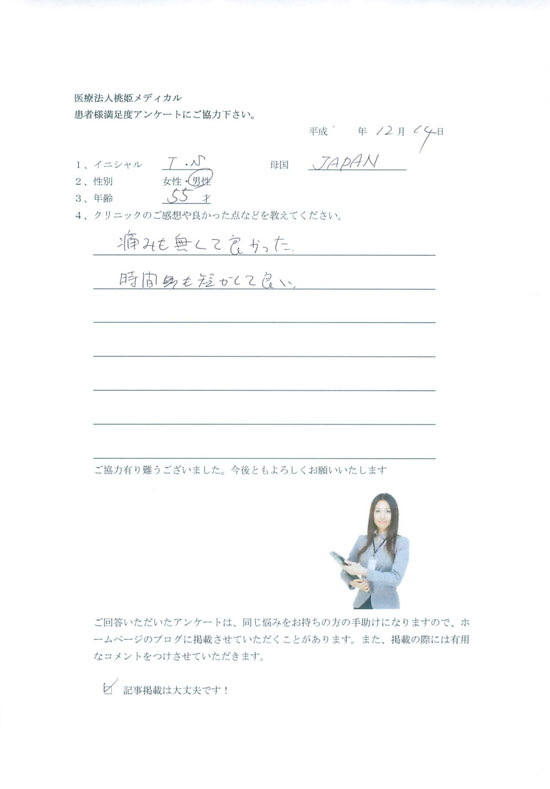 医療法人桃姫メディカル
患者様満足度アンケートにご協力下さい。
平成 年 12月 19日
1、イニシャル T.N 母国 JAPAN
2、性別 女性・男性
3、年齢 55 才
4、クリニックのご感想や良かった点などを教えてください。
痛みも無くて良かった。
時間も短かくて良い。
ご協力有り難うございました。今後ともよろしくお願いいたします
ご回答いただいたアンケートは、同じ悩みをお持ちの方の手助けになりますので、ホ
ームページのブログに掲載させていただくことがあります。また、掲載の際には有用
なコメントをつけさせていただきます。
☑ 記事掲載は大丈夫です！